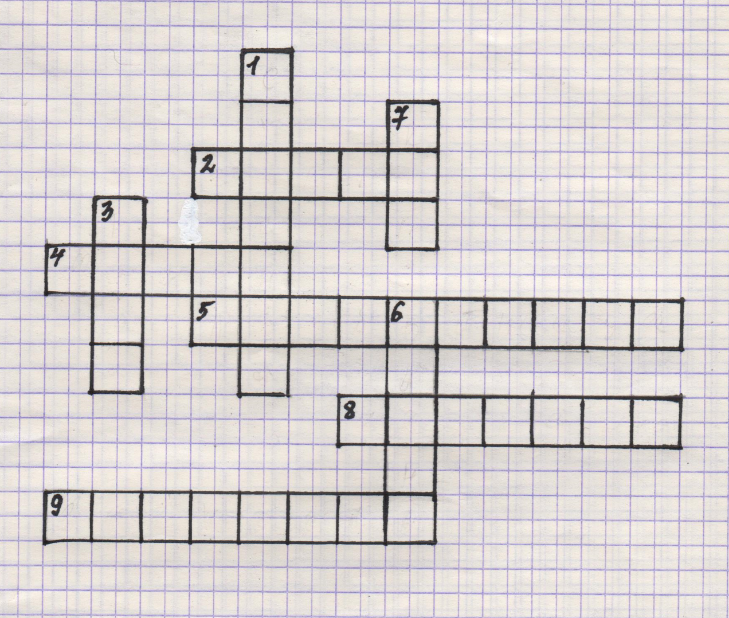 1
7
2
3
4
5 6
8
9